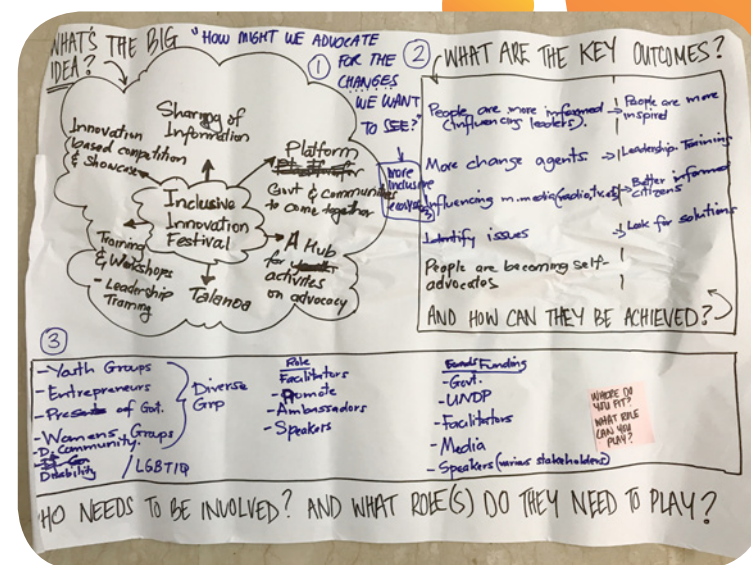 WHAT'S THE BIG
IDEA?
"HOW MIGHT WE ADVOCATE
FOR THE
CHANGES
WE WANT
TO SEE?"
more
inclusive
①
Sharing of
Information
Innovation
based competition
& Showcase
Platform
Govt & Communities
to come together
Inclusive
Innovation
Festival
A Hub
for
activites
on advocacy
Training
& Workshops
- Leadership
Training
Talanoa
② WHAT ARE THE KEY OUTCOMES?
People are more informed → People are more
(influencing leaders). inspired
More change agents → Leadership Training
Influencing m.media (radio, tv, etc) → Better informed
citizens
Identify issues → Look for solutions
People are becoming self-
advocates
AND HOW CAN THEY BE ACHIEVED?
③
- Youth Groups
- Entrepreneurs
- of Govt.
- Womens Groups
- D. Community.
Disability / LGBTIQ
Diverse
Grp
Role
Facilitators
- Promote
- Ambassadors
- Speakers
Funding
- Govt.
- UNDP
- Facilitators
- Media
- Speakers (various stakeholders)
WHERE DO
YOU FIT?
WHAT ROLE
CAN YOU
PLAY?
HO NEEDS TO BE INVOLVED? AND WHAT ROLE(S) DO THEY NEED TO PLAY?